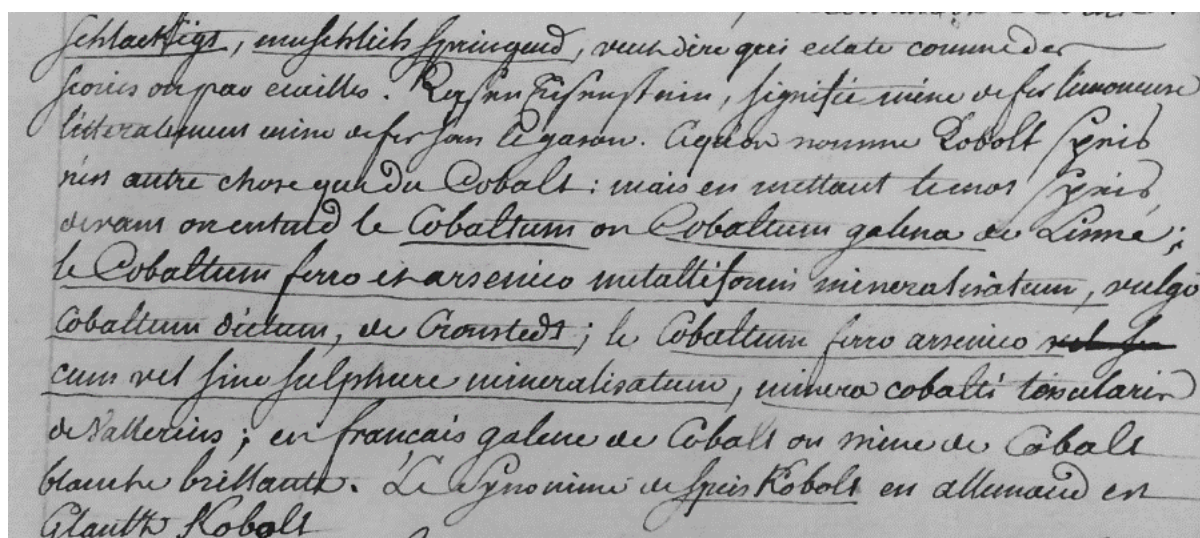 schlackigt, muschlich springend, veut dire qui eclate comme des
scories ou par ecailles. Rasen Eisenstein, signifie mine de fer limoneuse
litteralement mine de fer sous le gason. Ce qu'on nomme Kobolt Speis
n'est autre chose que du Cobalt : mais en mettant le mot Speis
devant on entend le Cobaltum ou Cobaltum galena de Linné ;
le Cobaltum ferro et arsenico metalliformis mineralisatum, vulgo
Cobaltum dictum, de Cronstedt ; le Cobaltum ferro arsenico
cum vel sine sulphure mineralisatum, minera cobalti tesularis
de Vallerius ; en français galene de Cobalt ou mine de Cobalt
blanche brillante. Le Synonime de speis Kobolt en allemand est
Glantz Kobolt